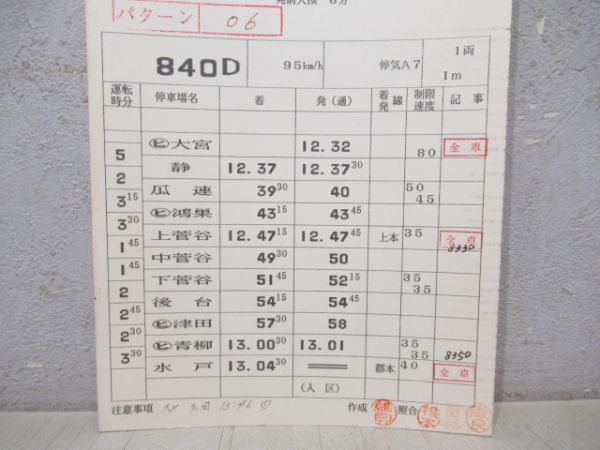 発前入換 8分
パターン 06
840D 95km/h 停気A7 1両
1m
運転時分 停車場名 着 発(通) 着発線 制限速度 記事
㋪大宮 12.32 80 全車
5
静 12.37 12.37 30
2
瓜連 39 30 40 50 45
3 15
㋪鴻巣 43 15 43 45
3 30
上菅谷 12.47 15 12.47 45 上本 35 全車 8330
1 45
中菅谷 49 30 50
1 45
下菅谷 51 45 52 15 35 35
2
後台 54 15 54 45
2 45
㋪津田 57 30 58
2 30
㋪青柳 13.00 30 13.01 35 35 8350
3 30
水戸 13.04 30 ══ 郡本 40 全車
(入区)
注意事項 13:46 作成 照合